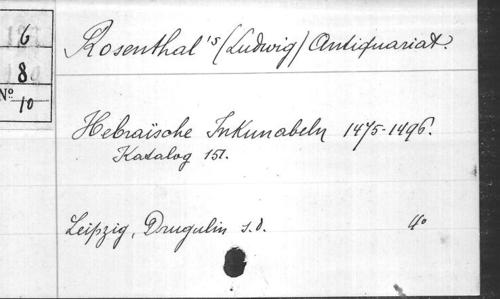 6
8
Nº 10
Rosenthal's (Ludwig) Antiquariat.
Hebraïsche Inkunabeln 1475-1496.
Katalog 151.
Leipzig, Drugulin s.d. 4º